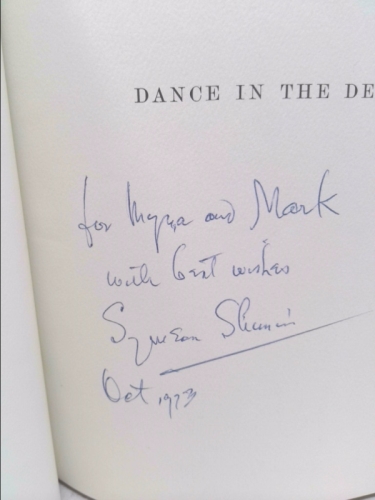 DANCE IN THE DE
for Myra and Mark
with best wishes
Symeon Shimin
Oct 1973